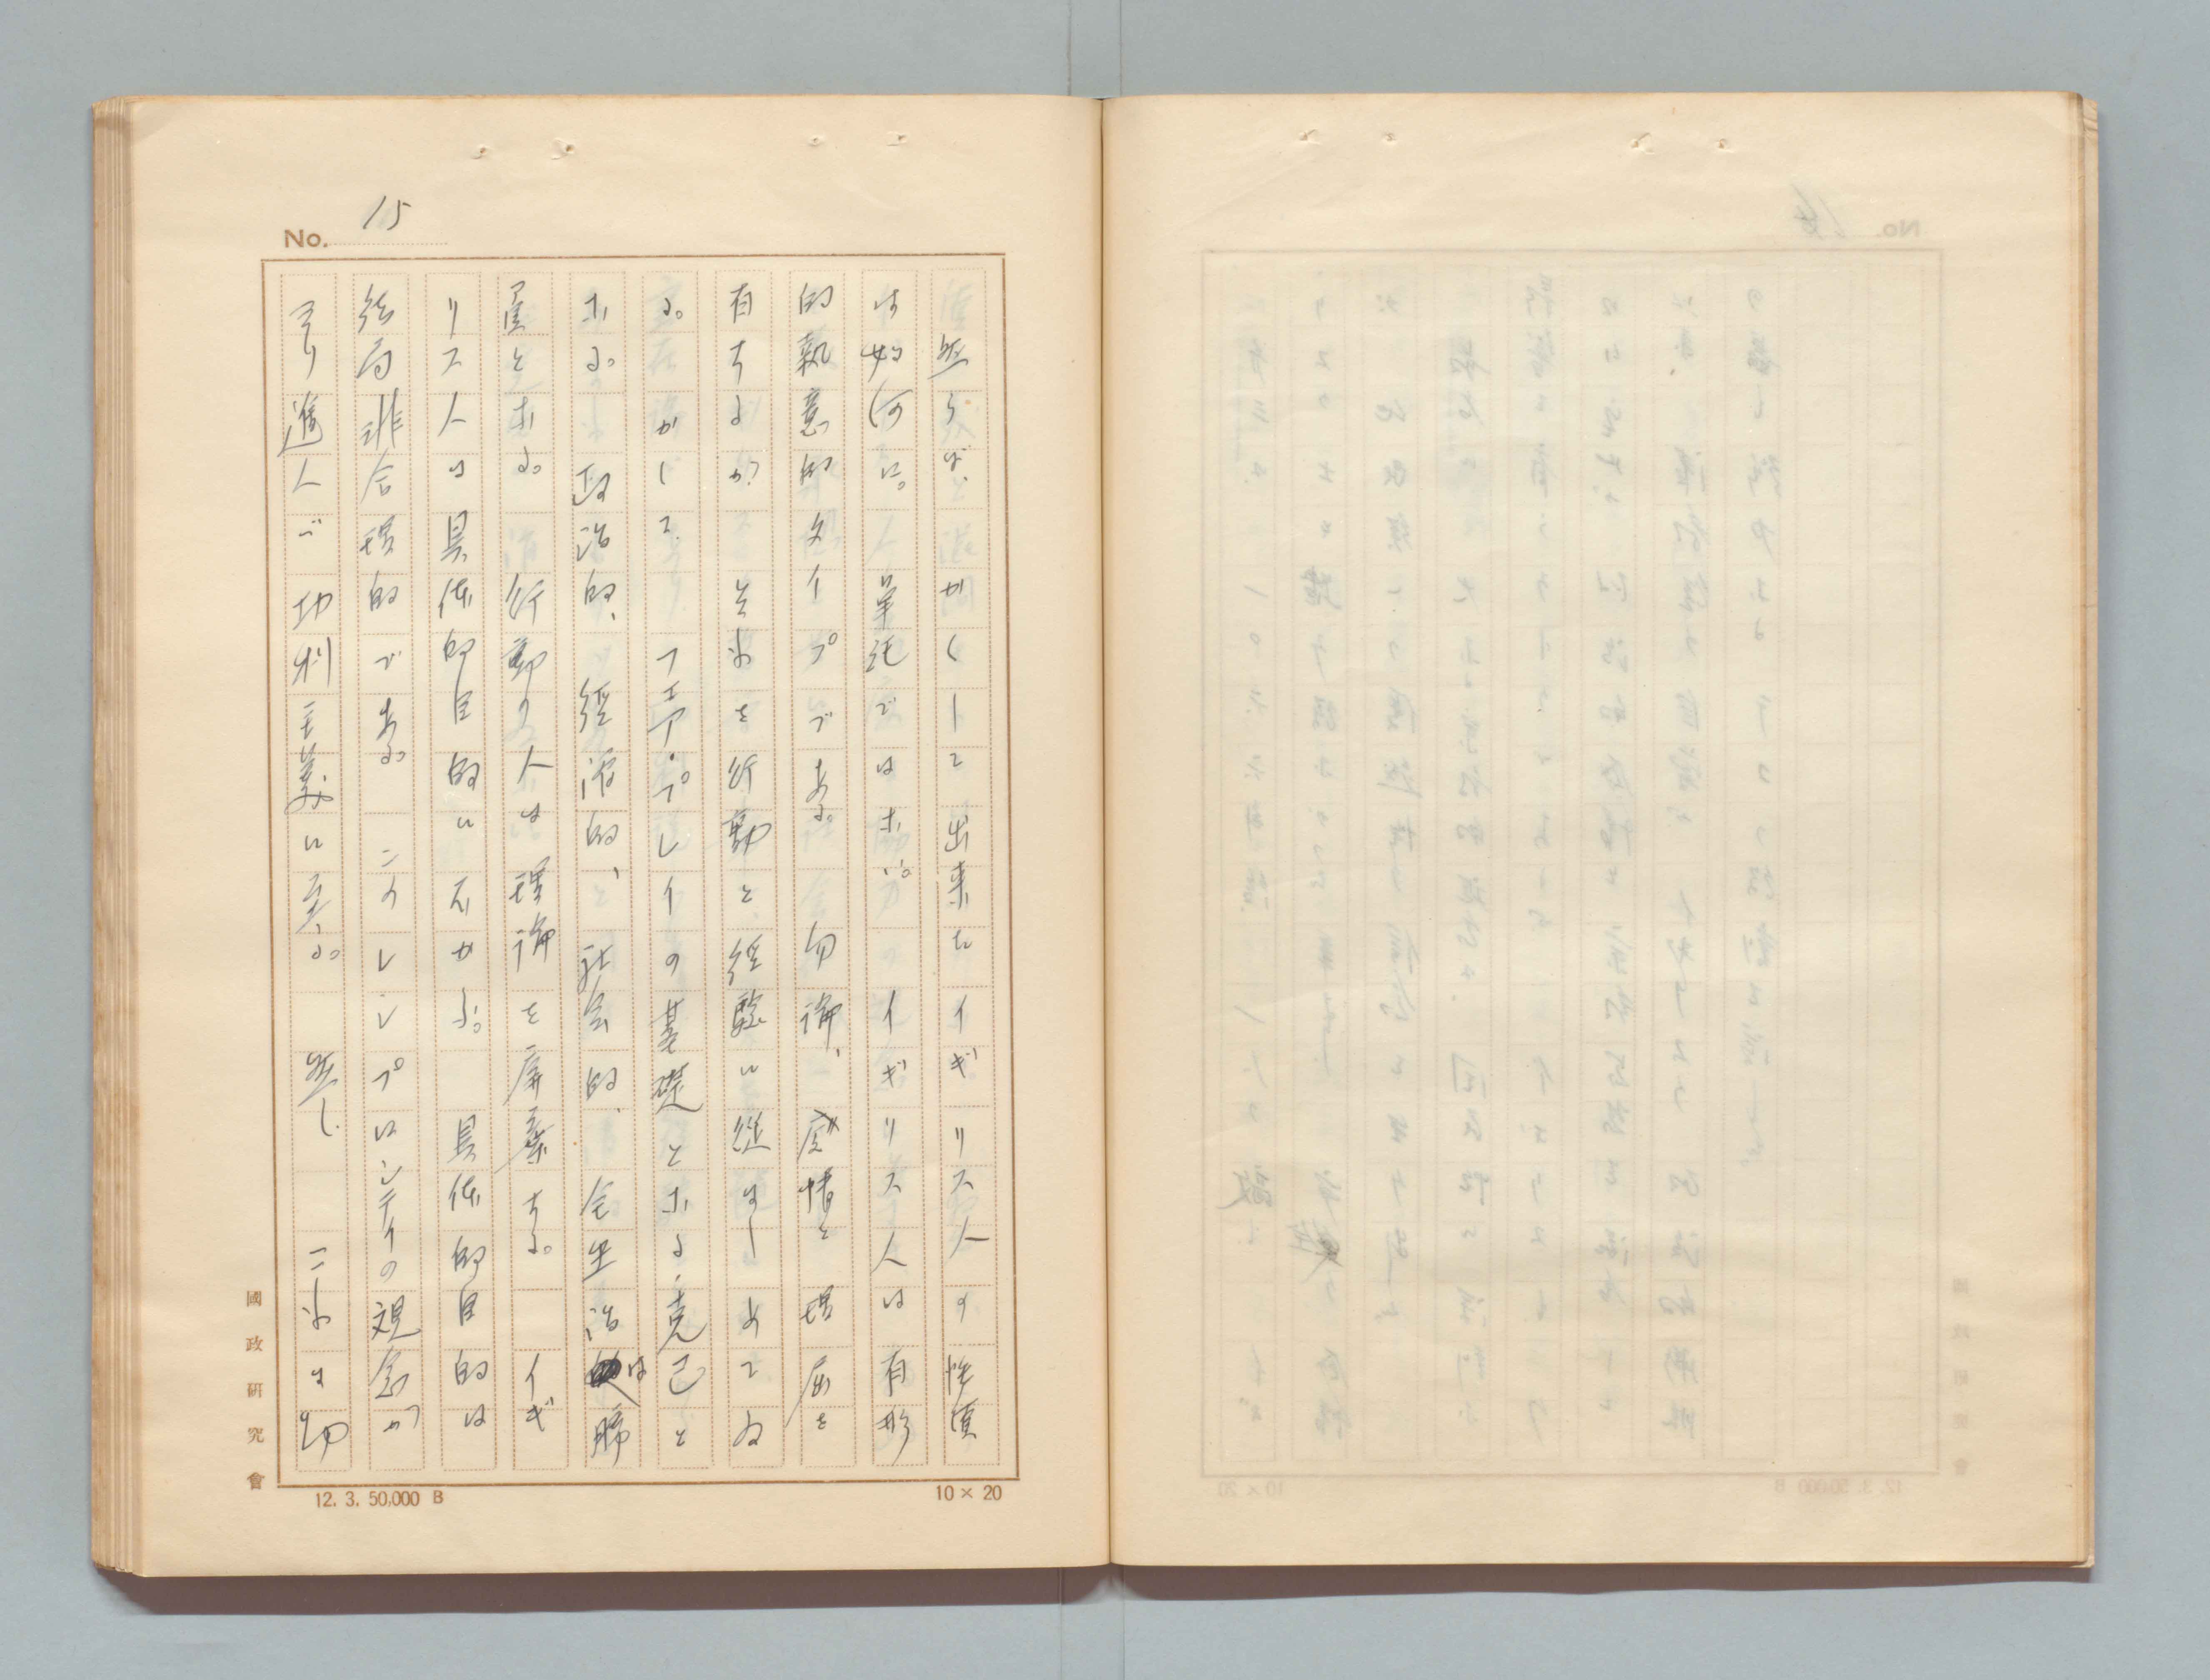 No. 15
然らば、かくして出来たイギリス人の性質
は如何に。単純ではない。イギリス人は有形
的執意的タイプである。勿論、感情と理屈を
有するが、それを行動と経験に従はしめてゐ
る。かして、フェア・プレイの基礎となる克己と
なる。政治的、経済的、社会的、全生活は勝
となる。行動の人は理論を廃棄する。イギ
リス人は具体的目的に向かふ。具体的目的は
結局非合理的である。このレシプロシティの観念が
より進んで功利主義に至る。然し、これは
國政研究會
12. 3. 50,000 B
10 × 20